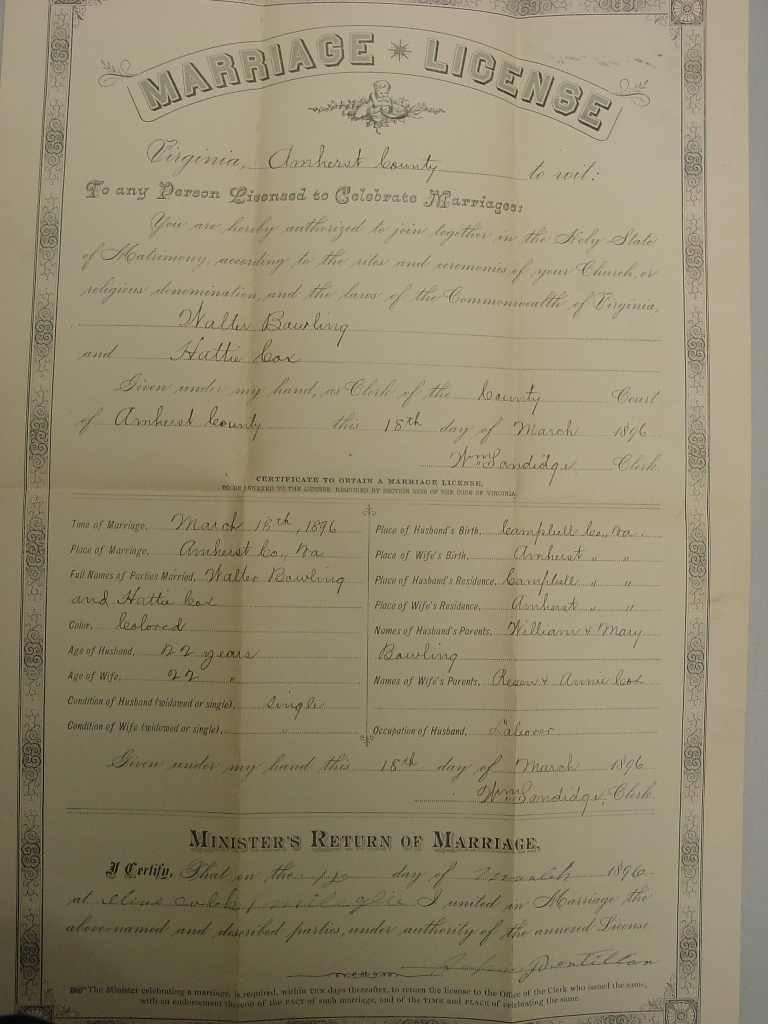 MARRIAGE LICENSE
Virginia, Amherst County to wit:
To any Person Licensed to Celebrate Marriages:
You are hereby authorized to join together in the Holy State
of Matrimony, according to the rites and ceremonies of your Church, or
religious denomination, and the laws of the Commonwealth of Virginia,
Walter Bowling
and Hattie Cox
Given under my hand, as Clerk of the County Court
of Amherst County this 18th day of March 1896
Wm Sandidge Clerk.
CERTIFICATE TO OBTAIN A MARRIAGE LICENSE,
TO BE ANNEXED TO THE LICENSE, REQUIRED BY SECTION OF THE CODE OF VIRGINIA.
Time of Marriage, March 18th, 1896
Place of Marriage, Amherst Co., Va
Full Names of Parties Married, Walter Bowling
and Hattie Cox
Color, Colored
Age of Husband, 22 years
Age of Wife, 22 "
Condition of Husband (widowed or single), Single
Condition of Wife (widowed or single), "
Place of Husband's Birth, Campbell Co., Va.
Place of Wife's Birth, Amherst " "
Place of Husband's Residence, Campbell " "
Place of Wife's Residence, Amherst " "
Names of Husband's Parents, William & Mary
Bowling
Names of Wife's Parents, & Annie Cox
Occupation of Husband, Laborer
Given under my hand this 18th day of March 1896
Wm Sandidge, Clerk.
MINISTER'S RETURN OF MARRIAGE.
I Certify, That on the day of March 1896
at I united in Marriage the
above-named and described parties, under authority of the annexed License.
The Minister celebrating a marriage, is required, within TEN days thereafter, to return the license to the Office of the Clerk who issued the same,
with an endorsement thereon of the FACT of such marriage, and of the TIME and PLACE of celebrating the same.